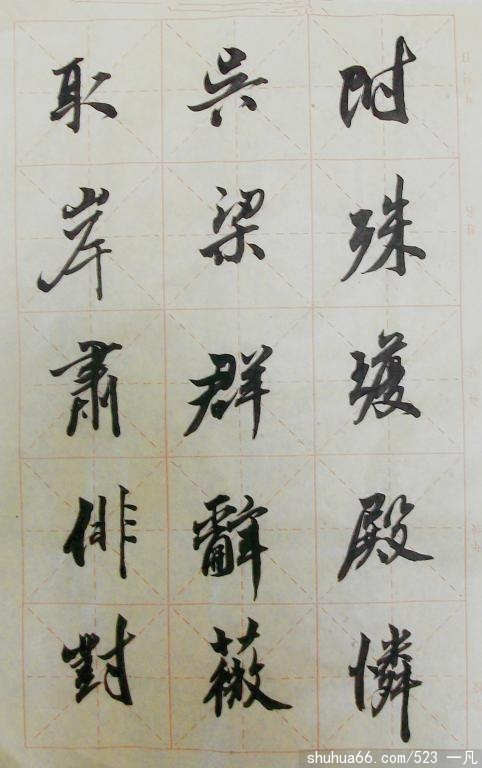 附殊瑷殿憐
吳梁群辭薇
取岸肅俳對
shuhua66.com/523 一凡